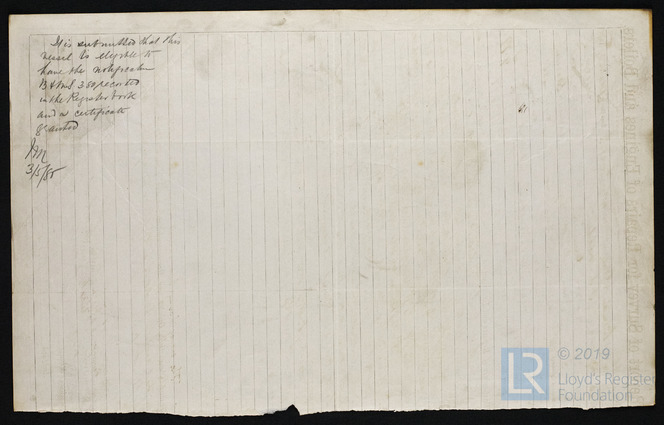 It is submitted that this
vessel is eligible to
have the notification
B&MS 3.85 recorded
in the Register book
and a certificate
granted
3/5/85
© 2019
LR
Lloyd's Register
Foundation